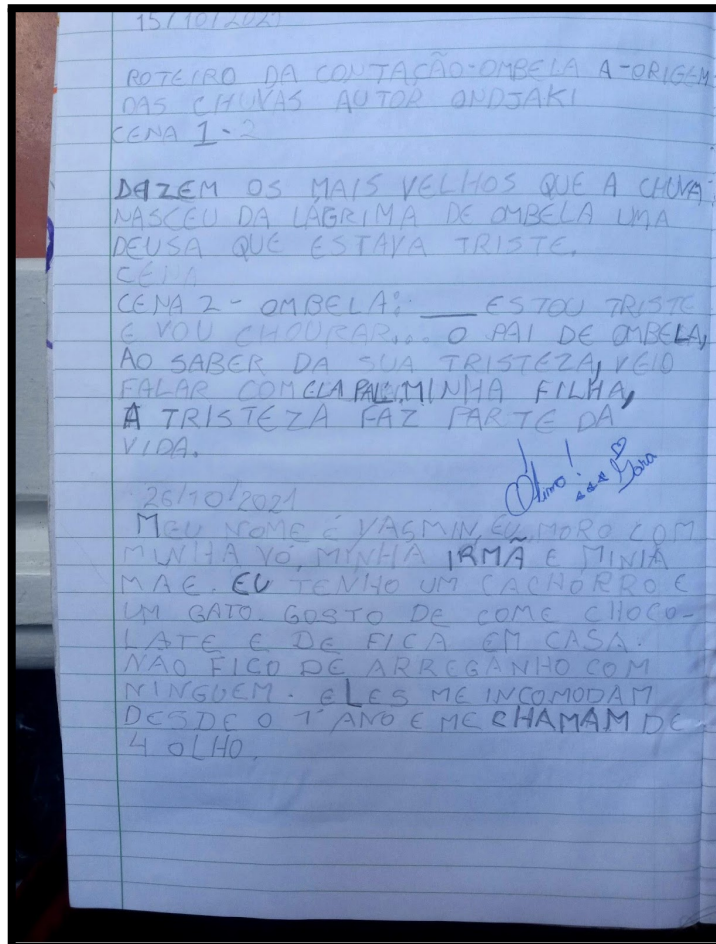 15/10/2021
ROTEIRO DA CONTAÇÃO-OMBELA A-ORIGEM
DAS CHUVAS AUTOR ONDJAKI
CENA 1-2
DIZEM OS MAIS VELHOS QUE A CHUVA
NASCEU DA LÁGRIMA DE OMBELA UMA
DEUSA QUE ESTAVA TRISTE.
CENA
CENA 2 - OMBELA: __ ESTOU TRISTE
E VOU CHOURAR... O PAI DE OMBELA,
AO SABER DA SUA TRISTEZA, VEIO
FALAR COM ELA PAI: MINHA FILHA,
A TRISTEZA FAZ PARTE DA
VIDA.
Ótimo!
26/10/2021
MEU NOME É YASMIN, EU MORO COM
MINHA VÓ, MINHA IRMÃ E MINIA
MAE. EU TENHO UM CACHORRO E
UM GATO. GOSTO DE COME CHOCO-
LATE E DE FICA EM CASA.
NÃO FICO DE ARREGANHO COM
NINGUEM. ELES ME INCOMODAM
DESDE O 1° ANO E ME CHAMAM DE
4 OLHO.